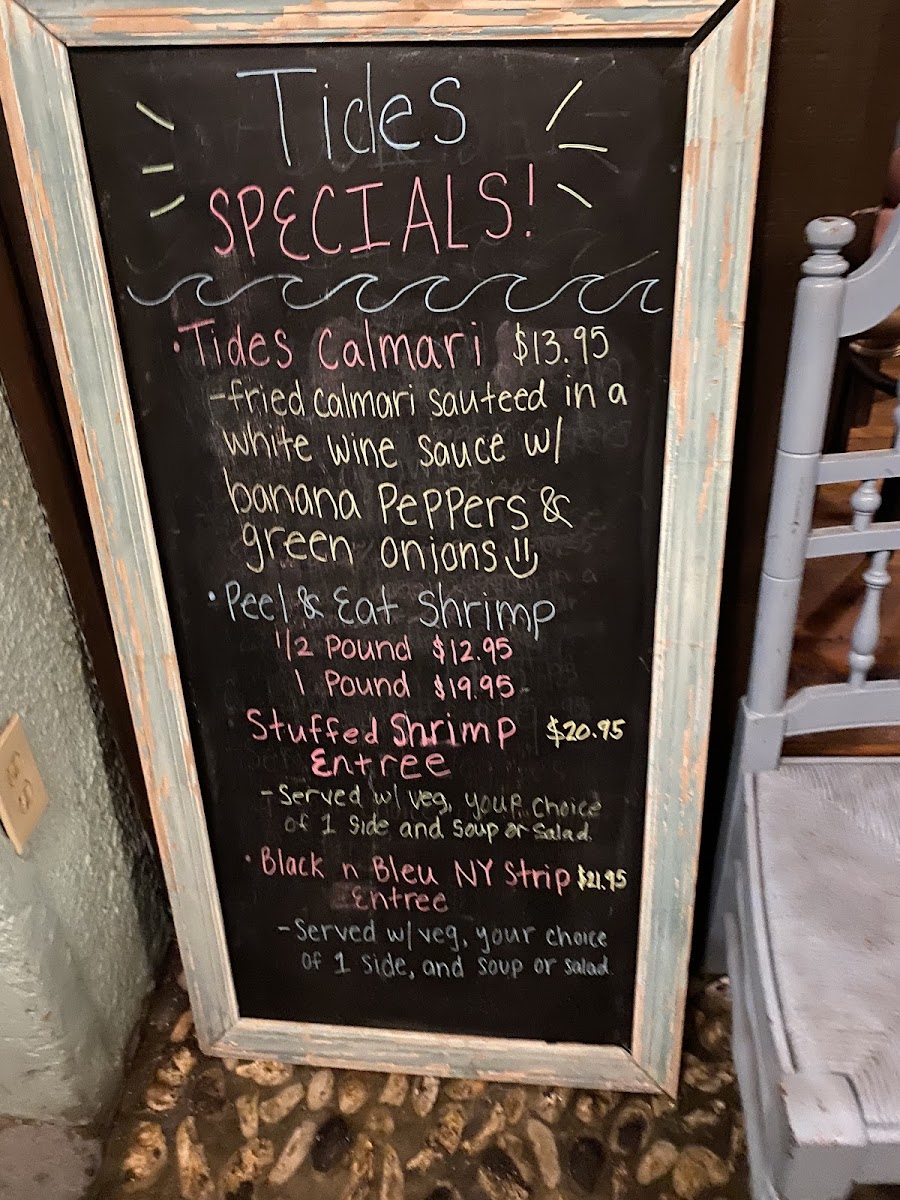 Tides
SPECIALS!
•Tides Calmari $13.95
-fried calmari sauteed in a
white wine sauce w/
banana Peppers &
green onions
•Peel & Eat Shrimp
1/2 Pound $12.95
1 Pound $19.95
Stuffed Shrimp $20.95
Entree
-Served w/ veg, your choice
of 1 side and soup or salad.
•Black n Bleu NY Strip $21.95
Entree
-Served w/ veg, your choice
of 1 side, and soup or salad.